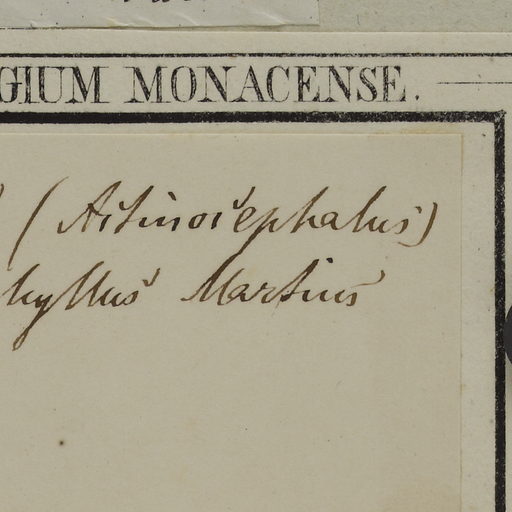 GIUM MONACENSE.
(Actinocephalus)
hyllus Martius